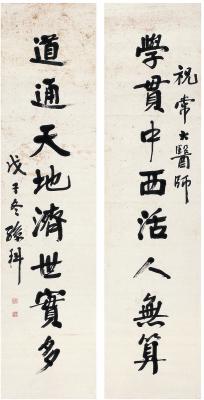 祝常大醫師
學貫中西活人無算
道通天地濟世寶多
戊子冬孫科